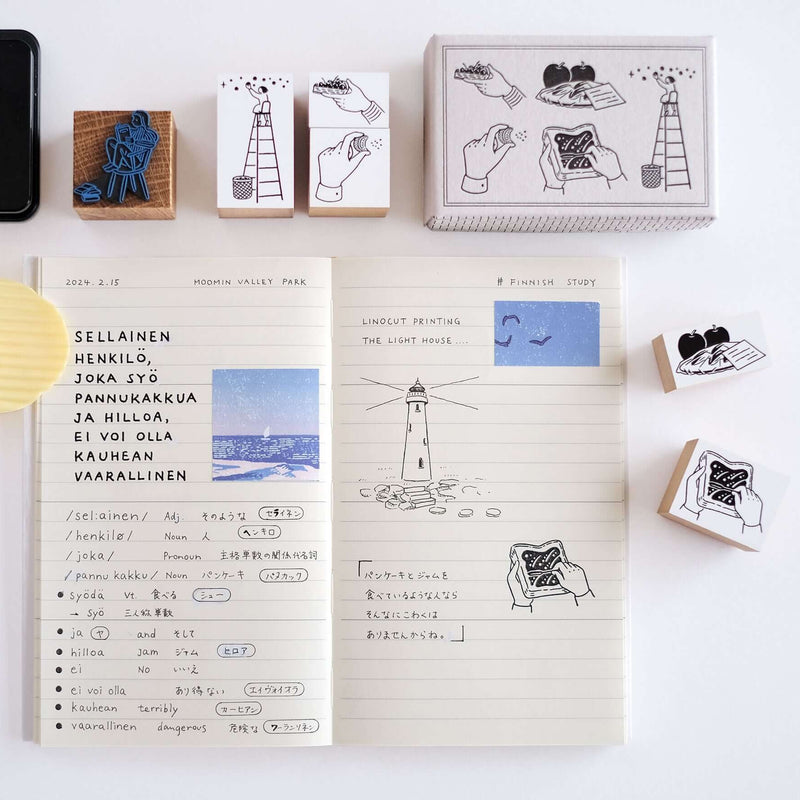 2024. 2. 15 MOOMIN VALLEY PARK
SELLAINEN
HENKILÖ,
JOKA SYÖ
PANNUKAKKUA
JA HILLOA,
EI VOI OLLA
KAUHEAN
VAARALLINEN
/sel:ainen/ Adj. そのような セライネン
/henkilø/ Noun 人 ヘンキロ
/joka/ Pronoun 主格単数の関係代名詞
/pannu kakku/ Noun パンケーキ パヌカック
• syödä vt. 食べる シュー
→ syö 三人称単数
• ja ヤ and そして
• hilloa Jam ジャム ヒロア
• ei No いいえ
• ei voi olla あり得ない エイヴォイオラ
• kauhean terribly カーヒアン
• vaarallinen dangerous 危険な ワーランリネン
# FINNISH STUDY
LINOCUT PRINTING
THE LIGHT HOUSE....
「パンケーキとジャムを
食べているような人なら
そんなにこわくは
ありませんからね。」